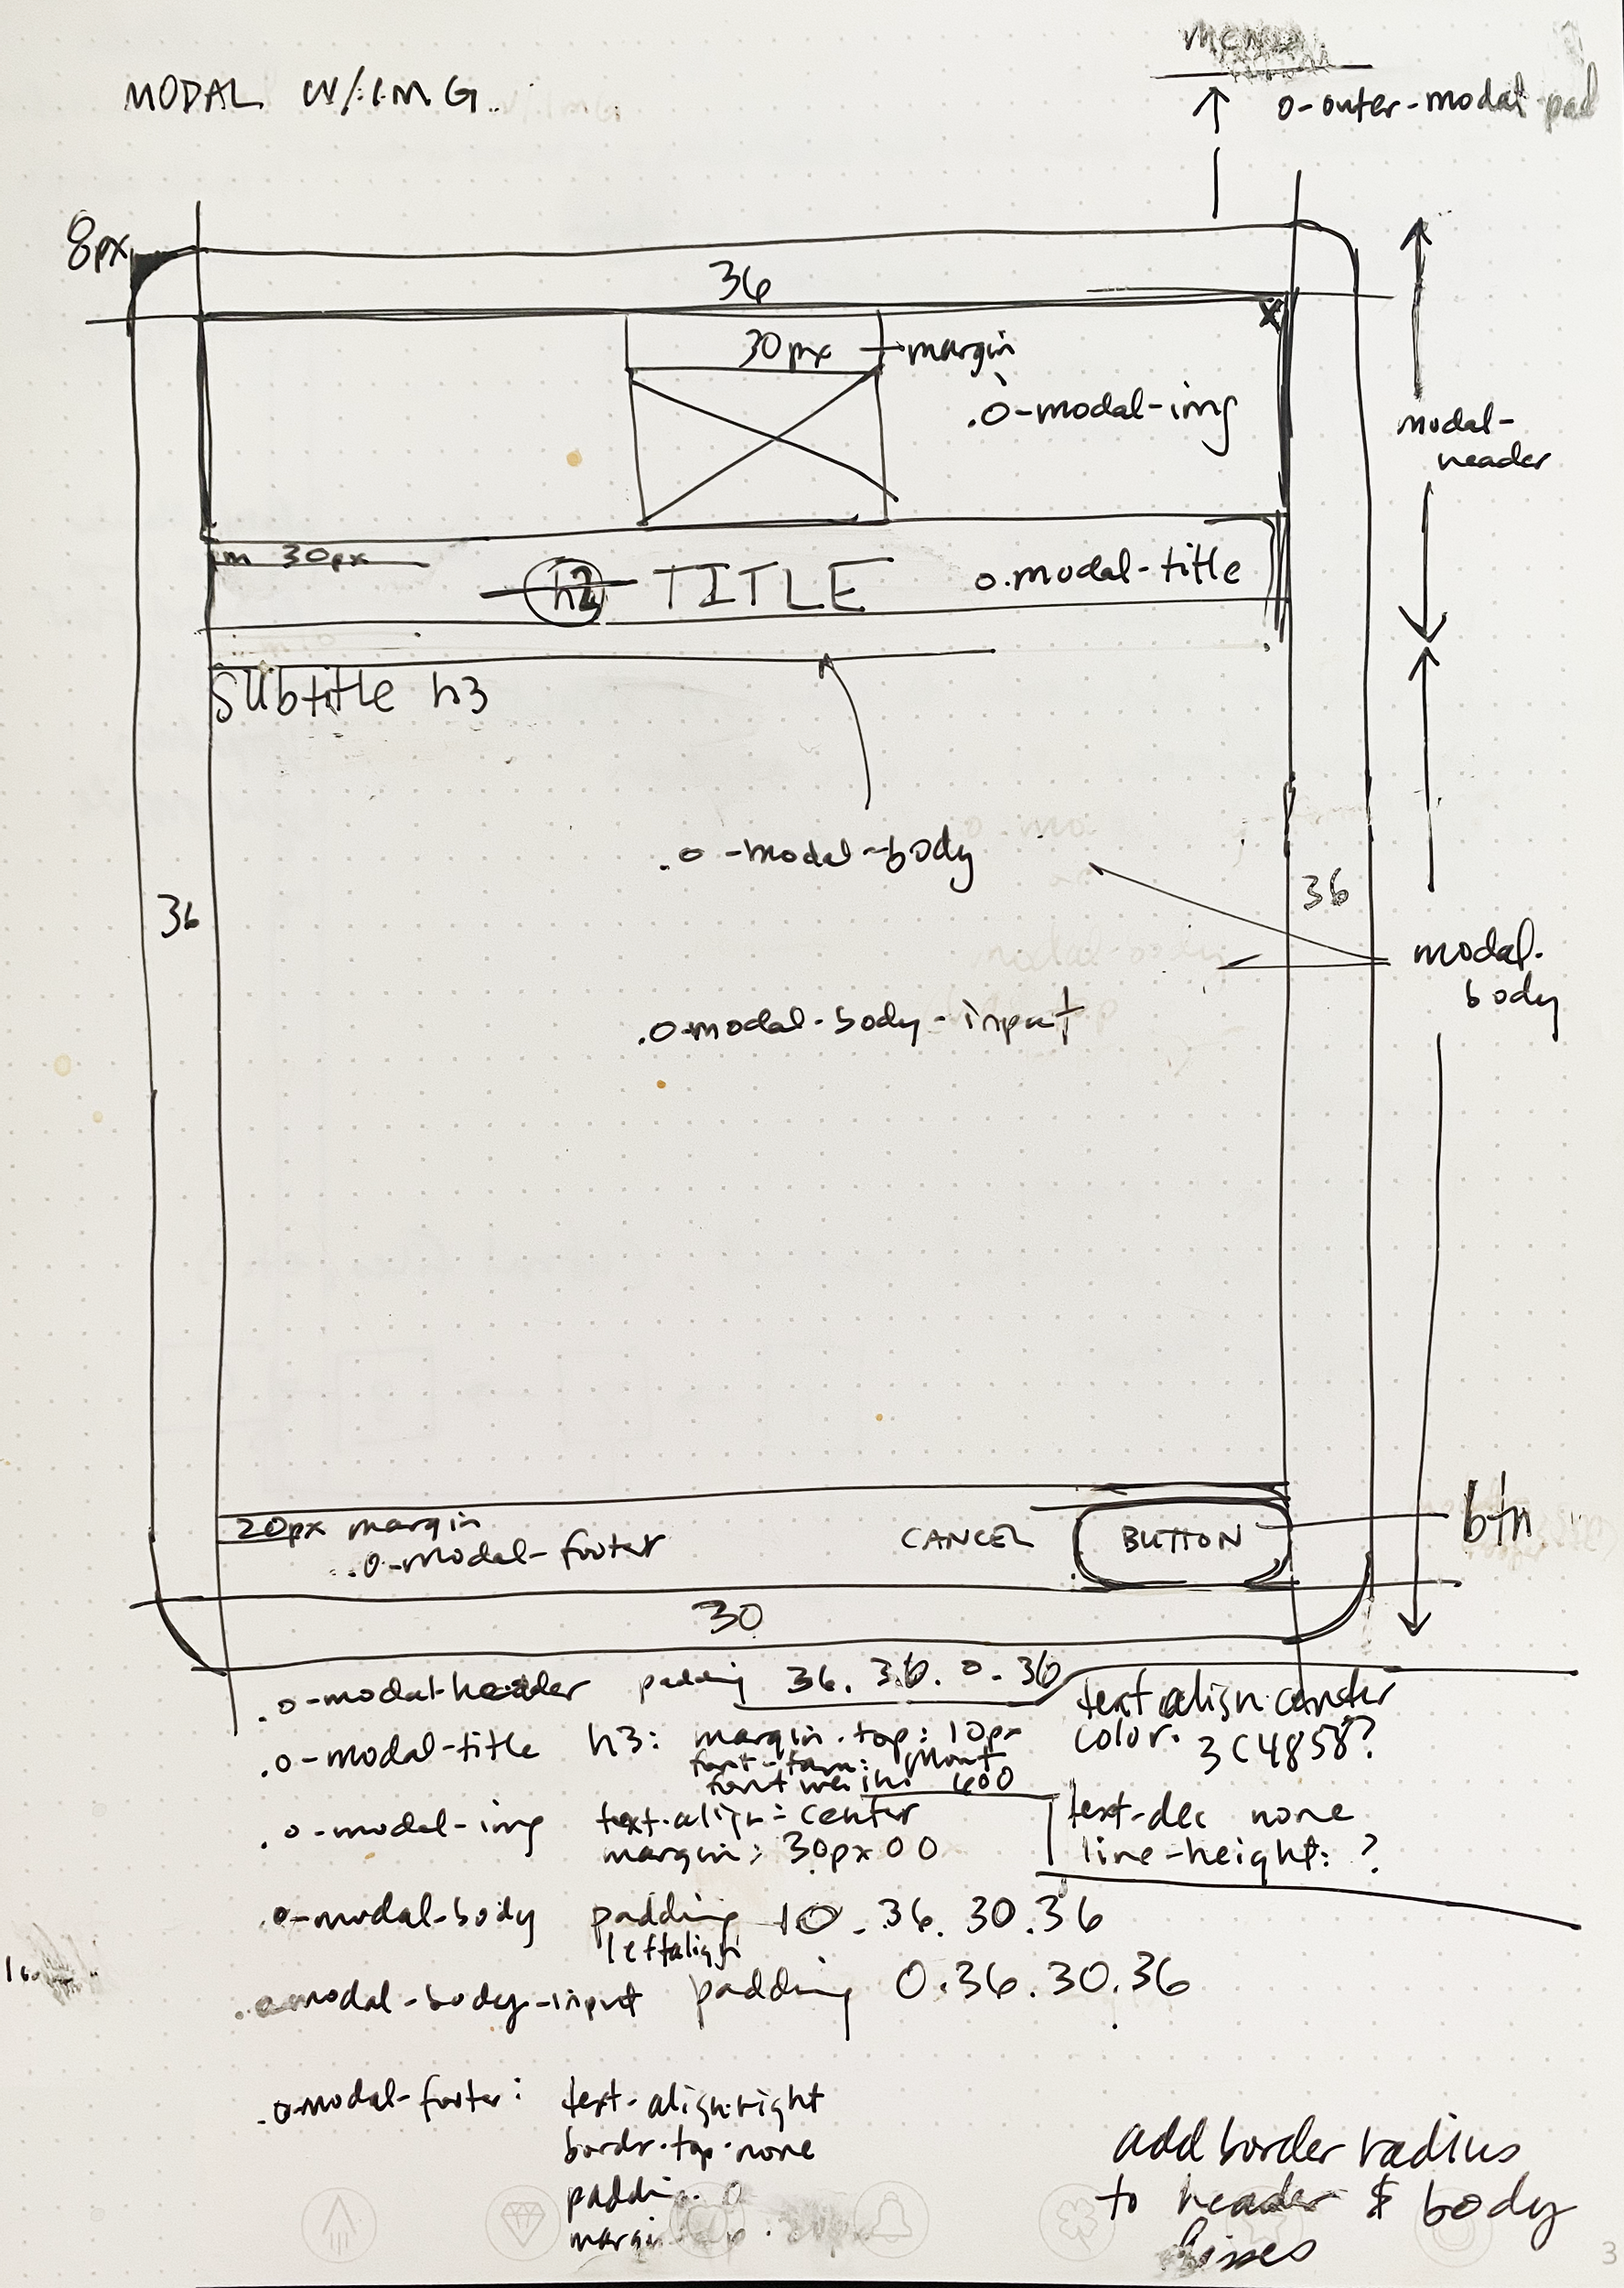 MODAL W/IMG.
o-outer-modal-pad
8px
36
x
30px margin
.o-modal-img
modal-
header
m 30px
h2 TITLE o.modal-title
Subtitle h3
.o-modal-body
36
36
modal-
body
.o-modal-body-input
20px margin
.o-modal-footer
CANCEL BUTTON
btn
30
.o-modal-header padding 36. 36. 0. 36
text align: center
color. 3C4858?
.o-modal-title h3: margin.top: 10px
font-fam: Mont
font weigh: 600
text-dec none
line-height: ?
.o-modal-img text-align: center
margin: 30px 0 0
.o-modal-body padding 10. 36. 30. 36
leftalign
.o-modal-body-input padding 0.36.30.36
.o-modal-footer: text-align:right
bordr-top-none
paddin. 0
add border radius
to header & body